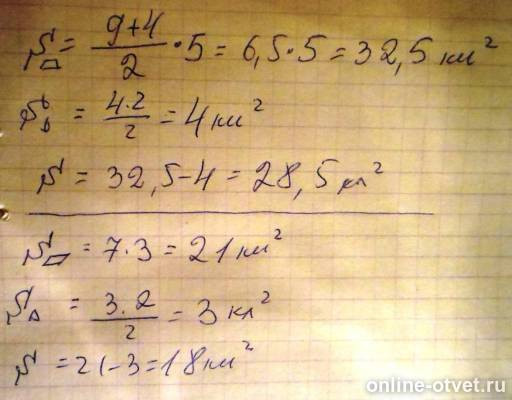 S⏢ = (9+4)/2 · 5 = 6,5 · 5 = 32,5 км²
S△ = (4·2)/2 = 4 км²
S = 32,5 - 4 = 28,5 км²
S▱ = 7 · 3 = 21 км²
S△ = (3·2)/2 = 3 км²
S = 21 - 3 = 18 км²
online-otvet.ru